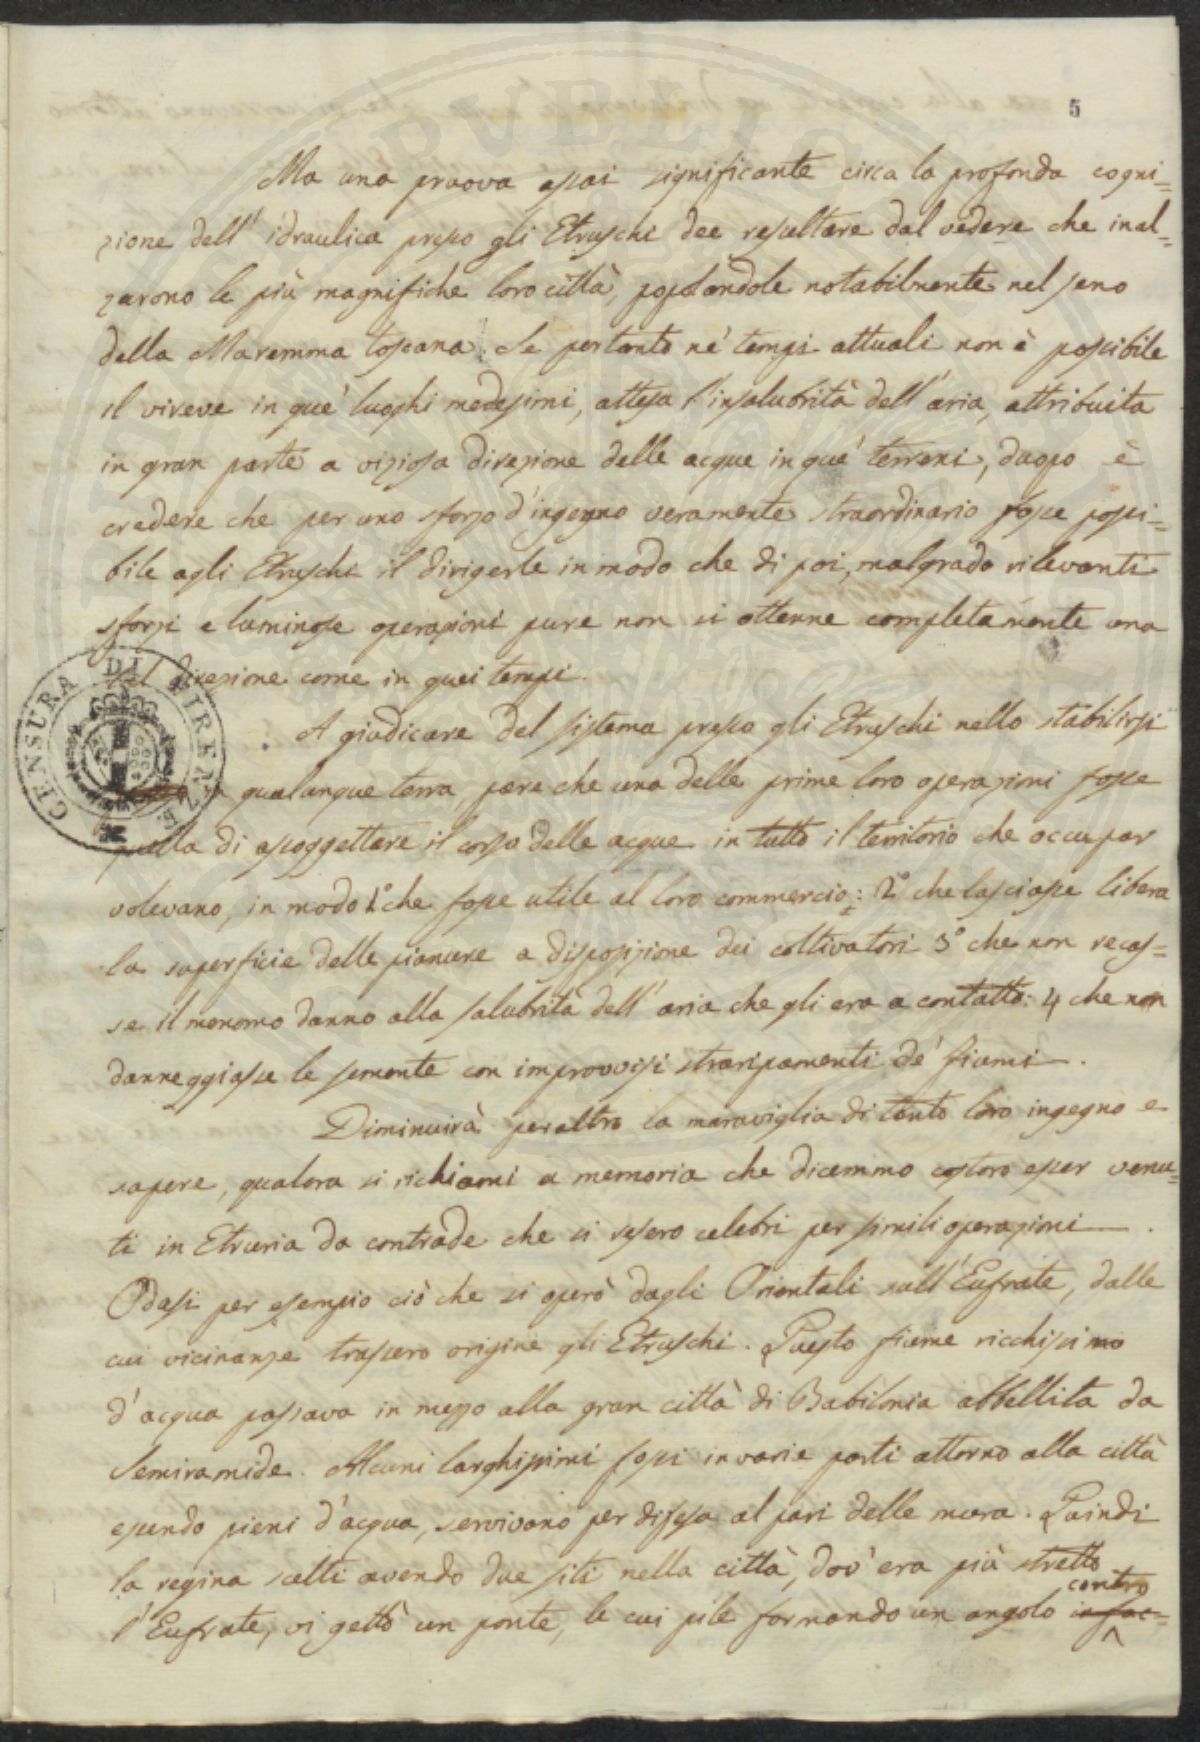 5
Ma una pruova assai significante circa la profonda cogni=
zione dell' idraulica presso gli Etruschi dee resultare dal vedere che inal=
zarono le più magnifiche loro città, popolandole notabilmente nel seno
della Maremma toscana. Se pertanto ne' tempi attuali non è possibile
il vivere in que' luoghi medesimi, attesa l'insalubrità dell' aria, attribuita
in gran parte a viziosa direzione delle acque in que' terreni, duopo è
credere che per uno sforzo d'ingegno veramente straordinario fosse possi=
bile agli Etruschi il dirigerle in modo che di poi, malgrado rilevanti
sforzi e luminose operazioni pure non si ottenne completamente una
tal direzione come in quei tempi.
A giudicare del sistema presso gli Etruschi nello stabilirsi
in qualunque terra, pare che una delle prime loro operazioni fosse
quella di assoggettare il corso delle acque in tutto il territorio che occupar
volevano, in modo 1° che fosse utile al loro commercio: 2° che lasciasse libera
la superficie delle pianure a disposizione dei coltivatori 3° che non recas=
se il menomo danno alla salubrità dell' aria che gli era a contatto: 4 che non
danneggiasse le semente con improvvisi straripamenti de' fiumi.
Diminuirà peraltro la maraviglia di tanto loro ingegno e
sapere, qualora si richiami a memoria che dicemmo costoro esser venu=
ti in Etruria da contrade che si resero celebri per simili operazioni.
Odasi per esempio ciò che si operò dagli Orientali sull' Eufrate, dalle
cui vicinanze trassero origine gli Etruschi. Questo fiume ricchissimo
d'acqua passava in mezzo alla gran città di Babilonia abbellita da
Semiramide. Alcuni larghissimi fossi in varie parti attorno alla città
essendo pieni d'acqua, servivano per difesa al pari delle mura. Quindi
la regina scelti avendo due siti nella città, dov' era più stretto
l' Eufrate, vi gettò un ponte, le cui pile formando un angolo infac=
contro
CENSURA DI FIRENZE